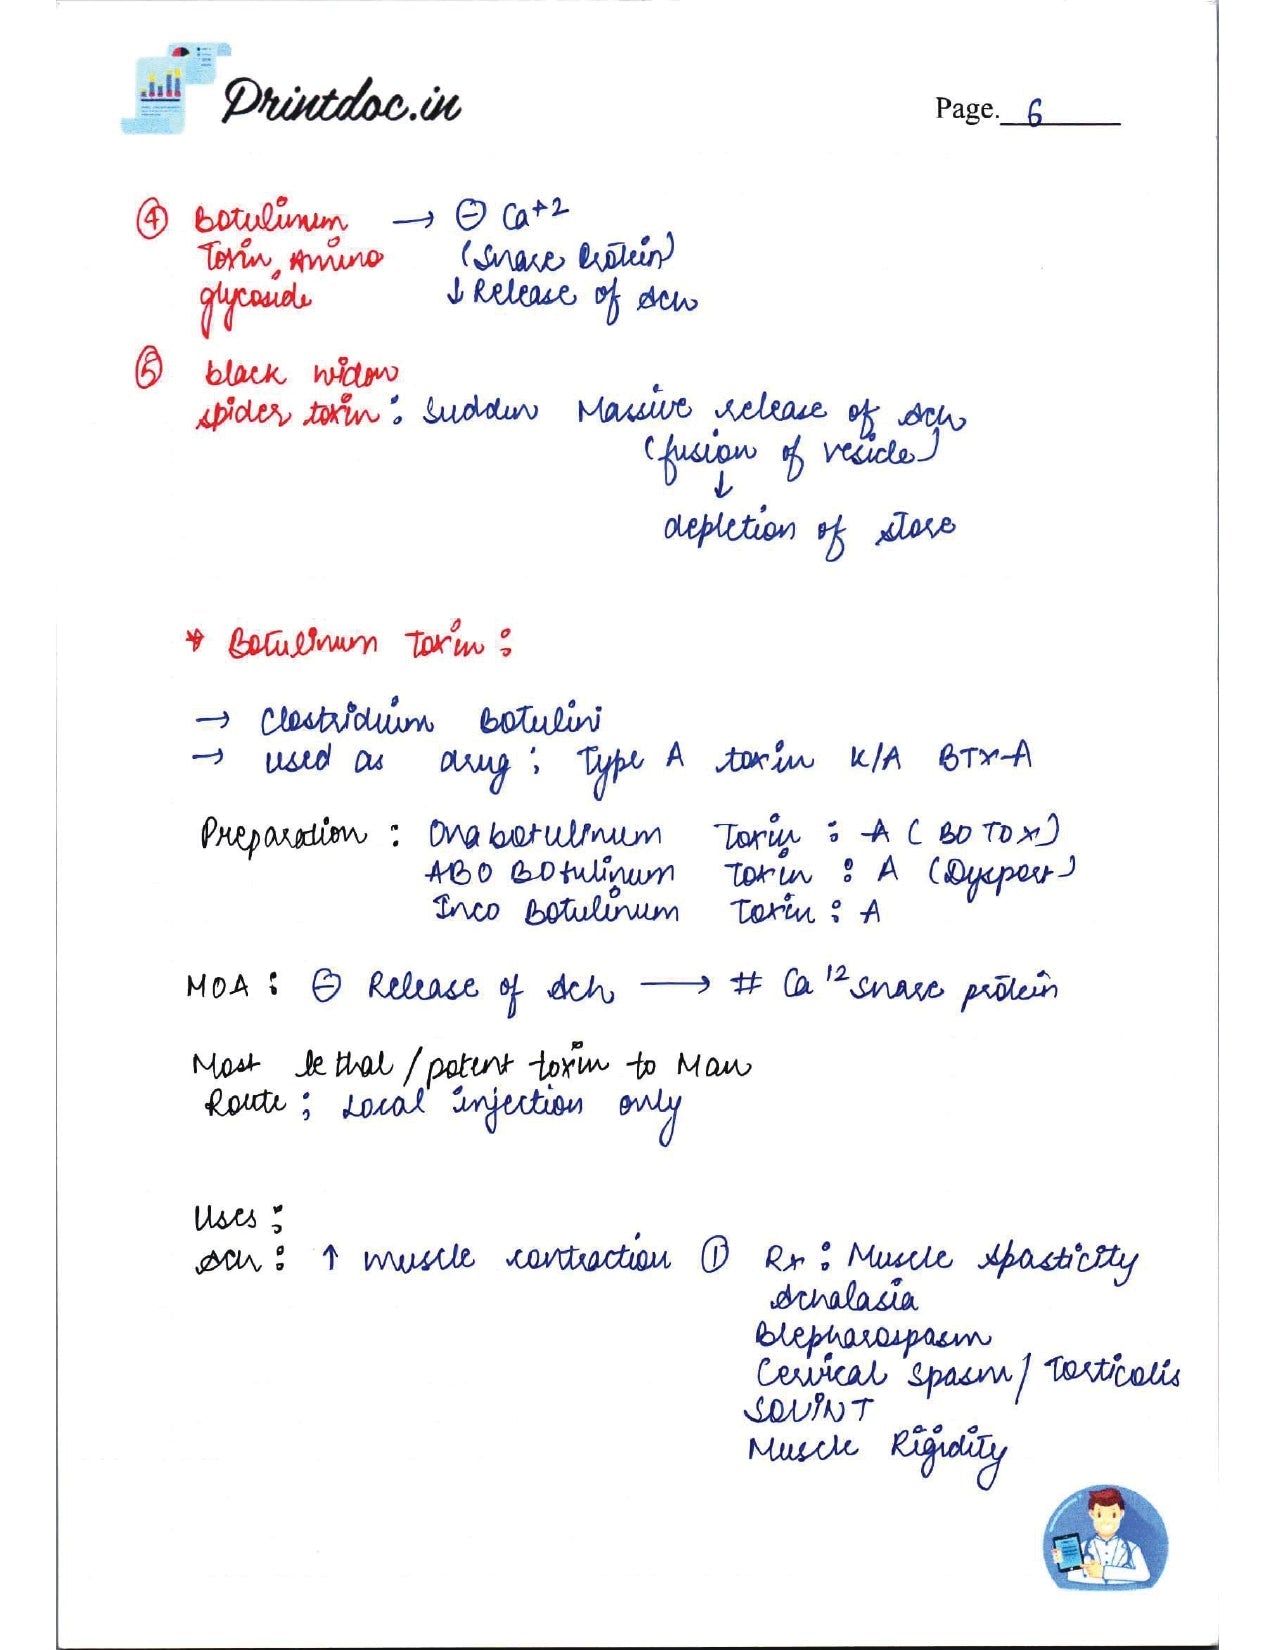 Printdoc.in
Page. 6
④ Botulinum → ⊖ Ca+2
Toxin, Amino (Snare Protein)
glycoside ↓ Release of Ach
⑤ black widow
spider toxin : Sudden Massive release of Ach
(fusion of vesicle)
↓
depletion of store
* Botulinum Toxin :
→ Clostridium Botulini
→ used as drug : Type A toxin K/A BTX-A
Preparation : Ona botulinum Toxin : A (BOTOX)
ABO BOtulinum Toxin : A (Dysport)
Inco Botulinum Toxin : A
MOA : ⊖ Release of Ach → # Ca +2 snare protein
Most lethal / potent toxin to Man
Route : Local injection only
Uses :
Ach : ↑ muscle contraction ① Rx : Muscle spasticity
Achalasia
Blepharospasm
Cervical spasm / Torticolis
SQUINT
Muscle Rigidity